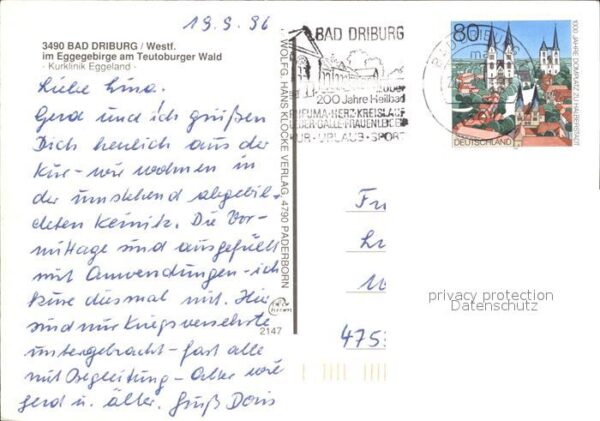 19.9.96
3490 BAD DRIBURG / Westf.
im Eggegebirge am Teutoburger Wald
- Kurklinik Eggeland -
Liebe Lina.
Gerd und ich grüßen
Dich herzlich aus der
Kur - wir wohnen in
der umstehend abgebil-
deten Keinitz. Die Vor-
mittage sind ausgefüllt
mit Anwendungen - ich
kure diesmal mit. Hier
sind nur Kriegsversehrte
untergebracht - fast alle
mit Begleitung - Alter wie
Gerd u. älter. Gruß Doris
WOLFG. HANS KLOCKE VERLAG, 4790 PADERBORN
2147
BAD DRIBURG
200 Jahre Heilbad
RHEUMA-HERZ-KREISLAUF
GALLE-FRAUENLEIDEN
KUR-URLAUB-SPORT
BAD DRIBURG
80
DEUTSCHLAND
1000 JAHRE DOMPLATZ ZU HALBERSTADT
Fr
475
privacy protection
Datenschutz